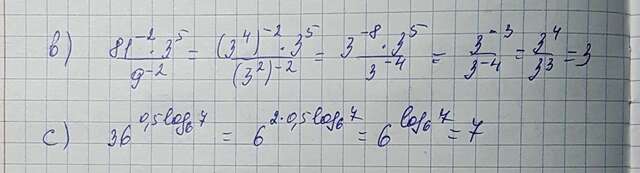 b) 81⁻²·3⁵/9⁻² = (3⁴)⁻²·3⁵/(3²)⁻² = 3⁻⁸·3⁵/3⁻⁴ = 3⁻³/3⁻⁴ = 3⁴/3³ = 3
c) 36^(0,5log₆7) = 6^(2·0,5log₆7) = 6^(log₆7) = 7